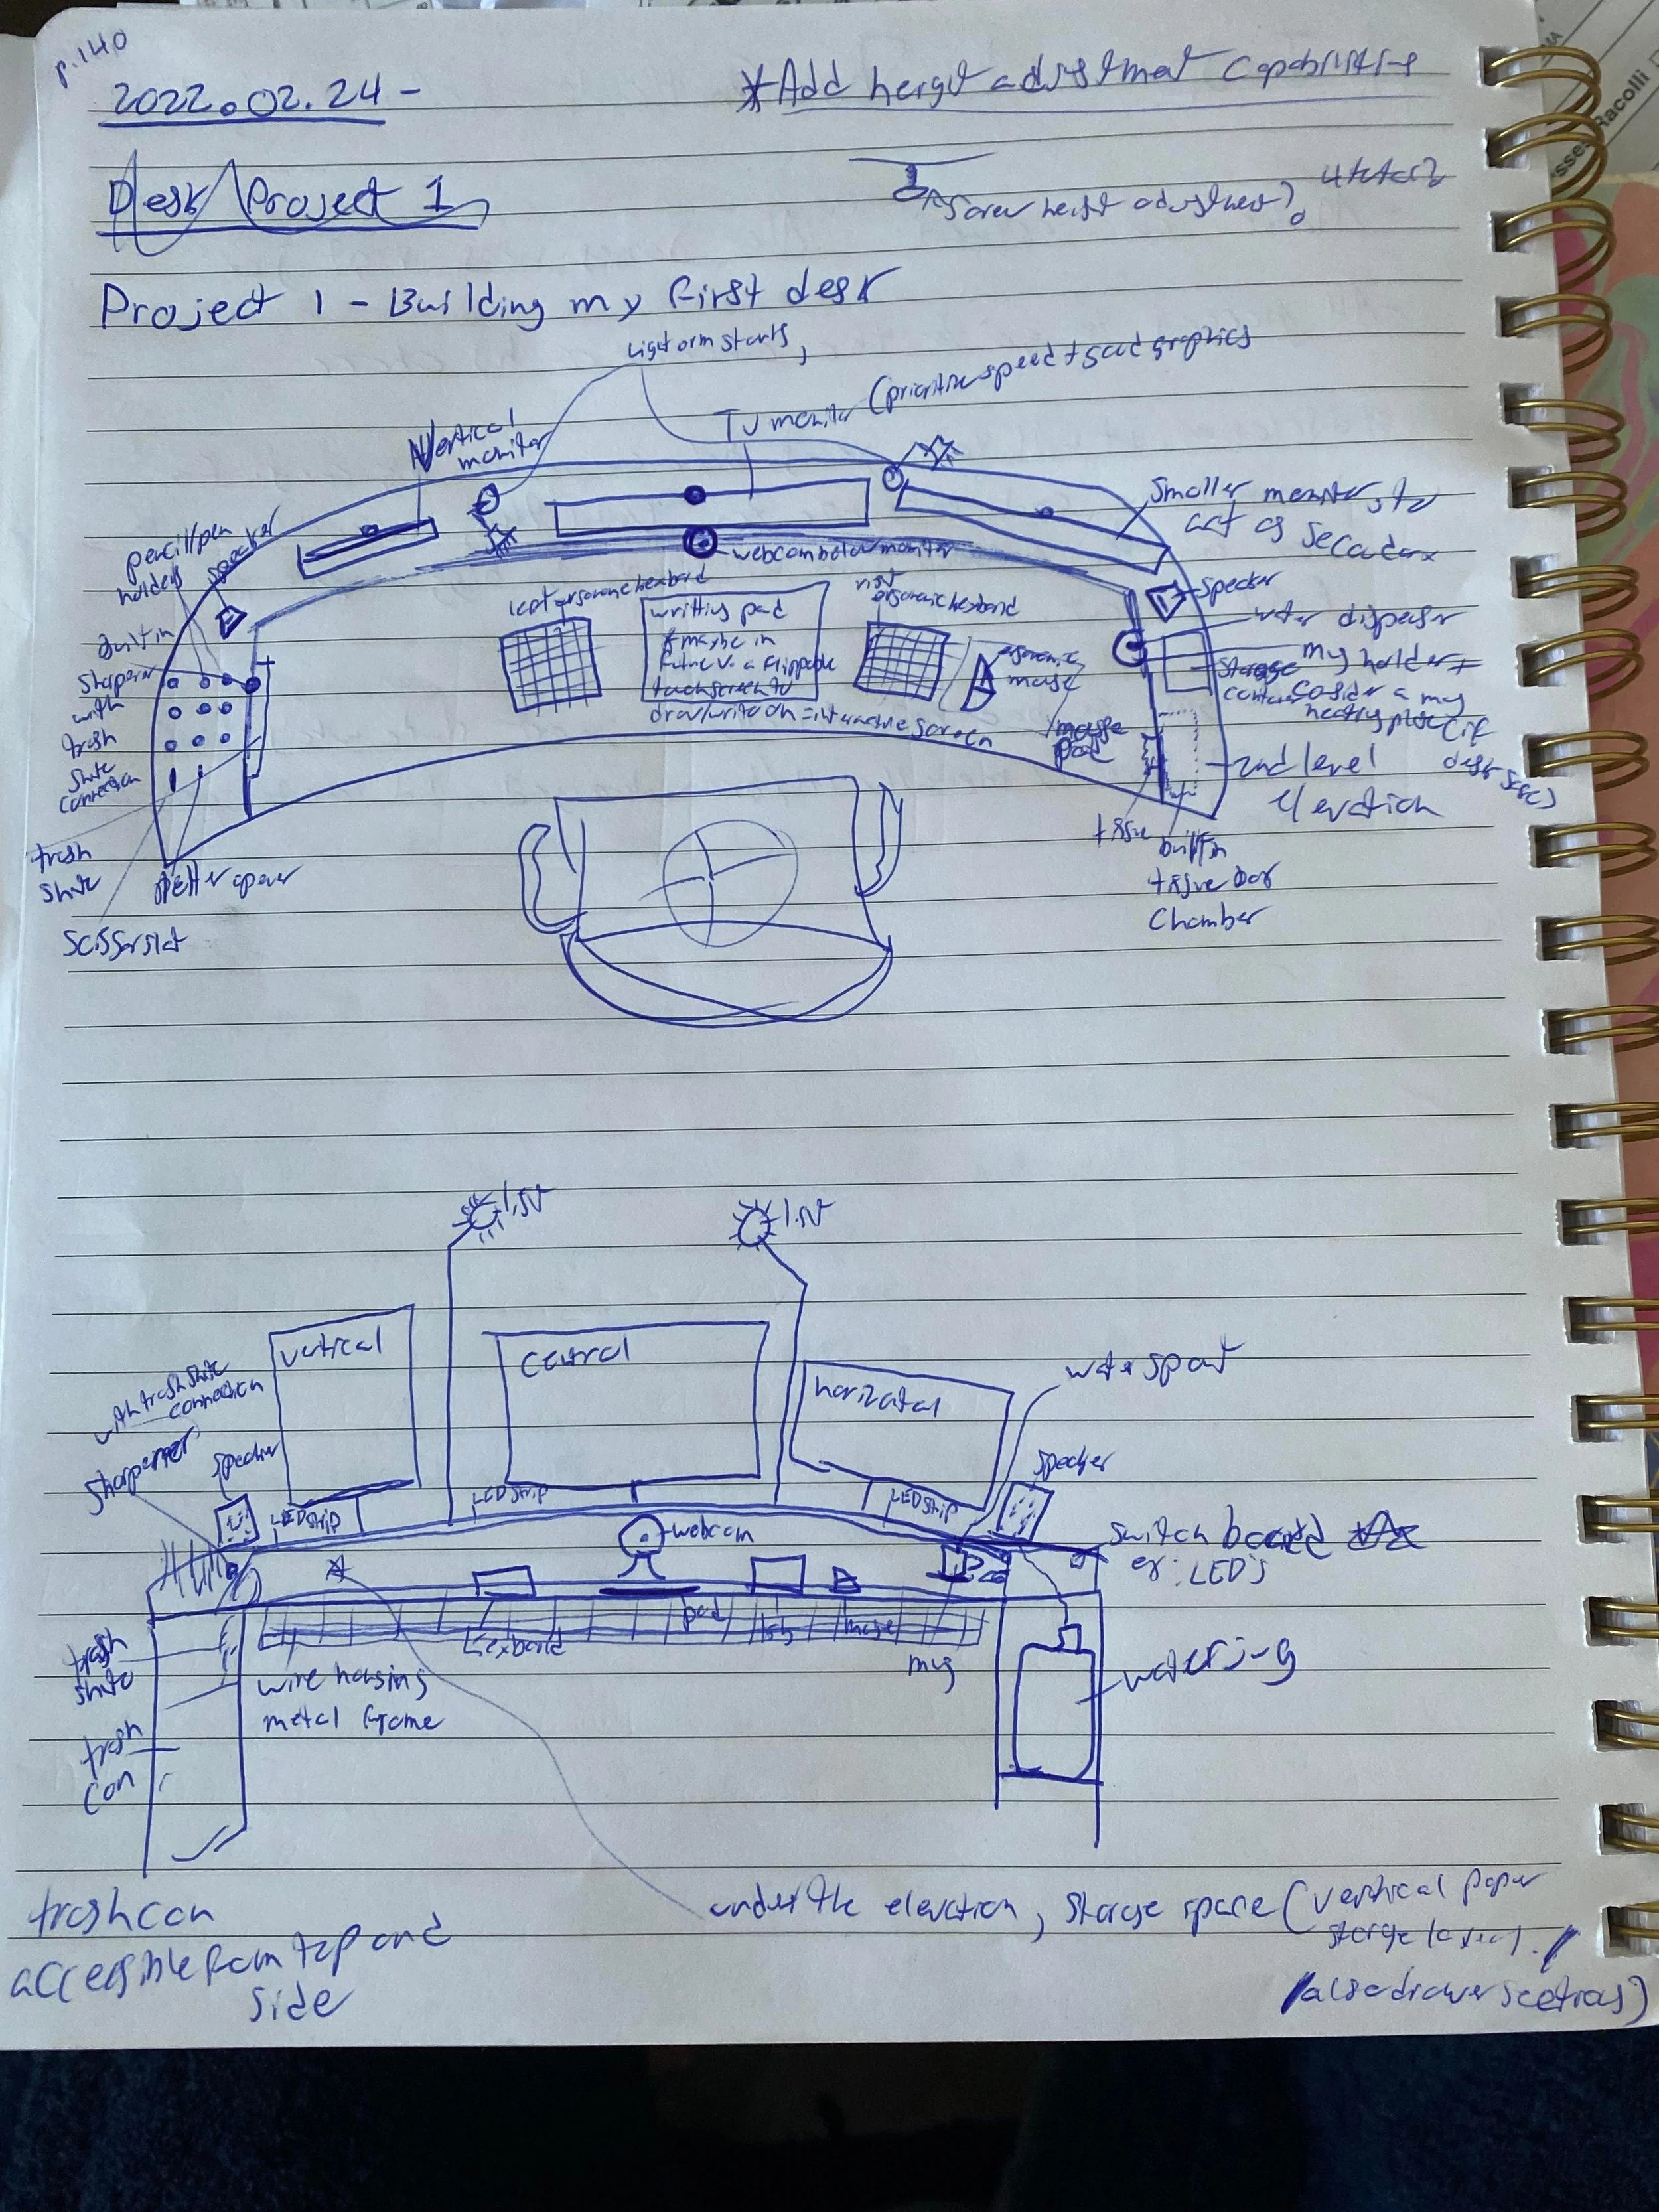 p.140
2022.02.24 -
*Add heigt adjustment capabilities
Desk Project 1
Screw height adjustment?
Project 1 - Building my first desk
Light arm starts,
TV monitor (prioritize speed + good graphics
Vertical
monitor
pencil/pen
holders
speaker
Smaller monitor, to
act as Secondary
webcam below monitor
left ergonomic keyboard
writting pad
* maybe in
future v. a flippable
touchscreen to
draw/write on = interactive screen
right
ergonomic keyboard
ergonomic
mouse
mouse
pad
Speaker
water dispenser
my holder +
Storage
consider a my
heating plate (if
2nd level
elevation
Built in
Sharpener
with
trash
shute
connection
trash
shute
letter opener
Scissor slot
tissue
built in
tissue box
Chamber
1.5V
1.5V
vertical
Central
horizontal
water spout
with trash shute
connection
Sharpener
speaker
speaker
LED strip
LED strip
LED strip
webcam
Switch board
ex: LED's
keyboard
pad
kb
mouse
mug
trash
shute
wire housing
metal frame
water jug
trash
Can
trash can
accessible from top and
side
under the elevation, storage space (vertical paper
storage
also drawer sections)